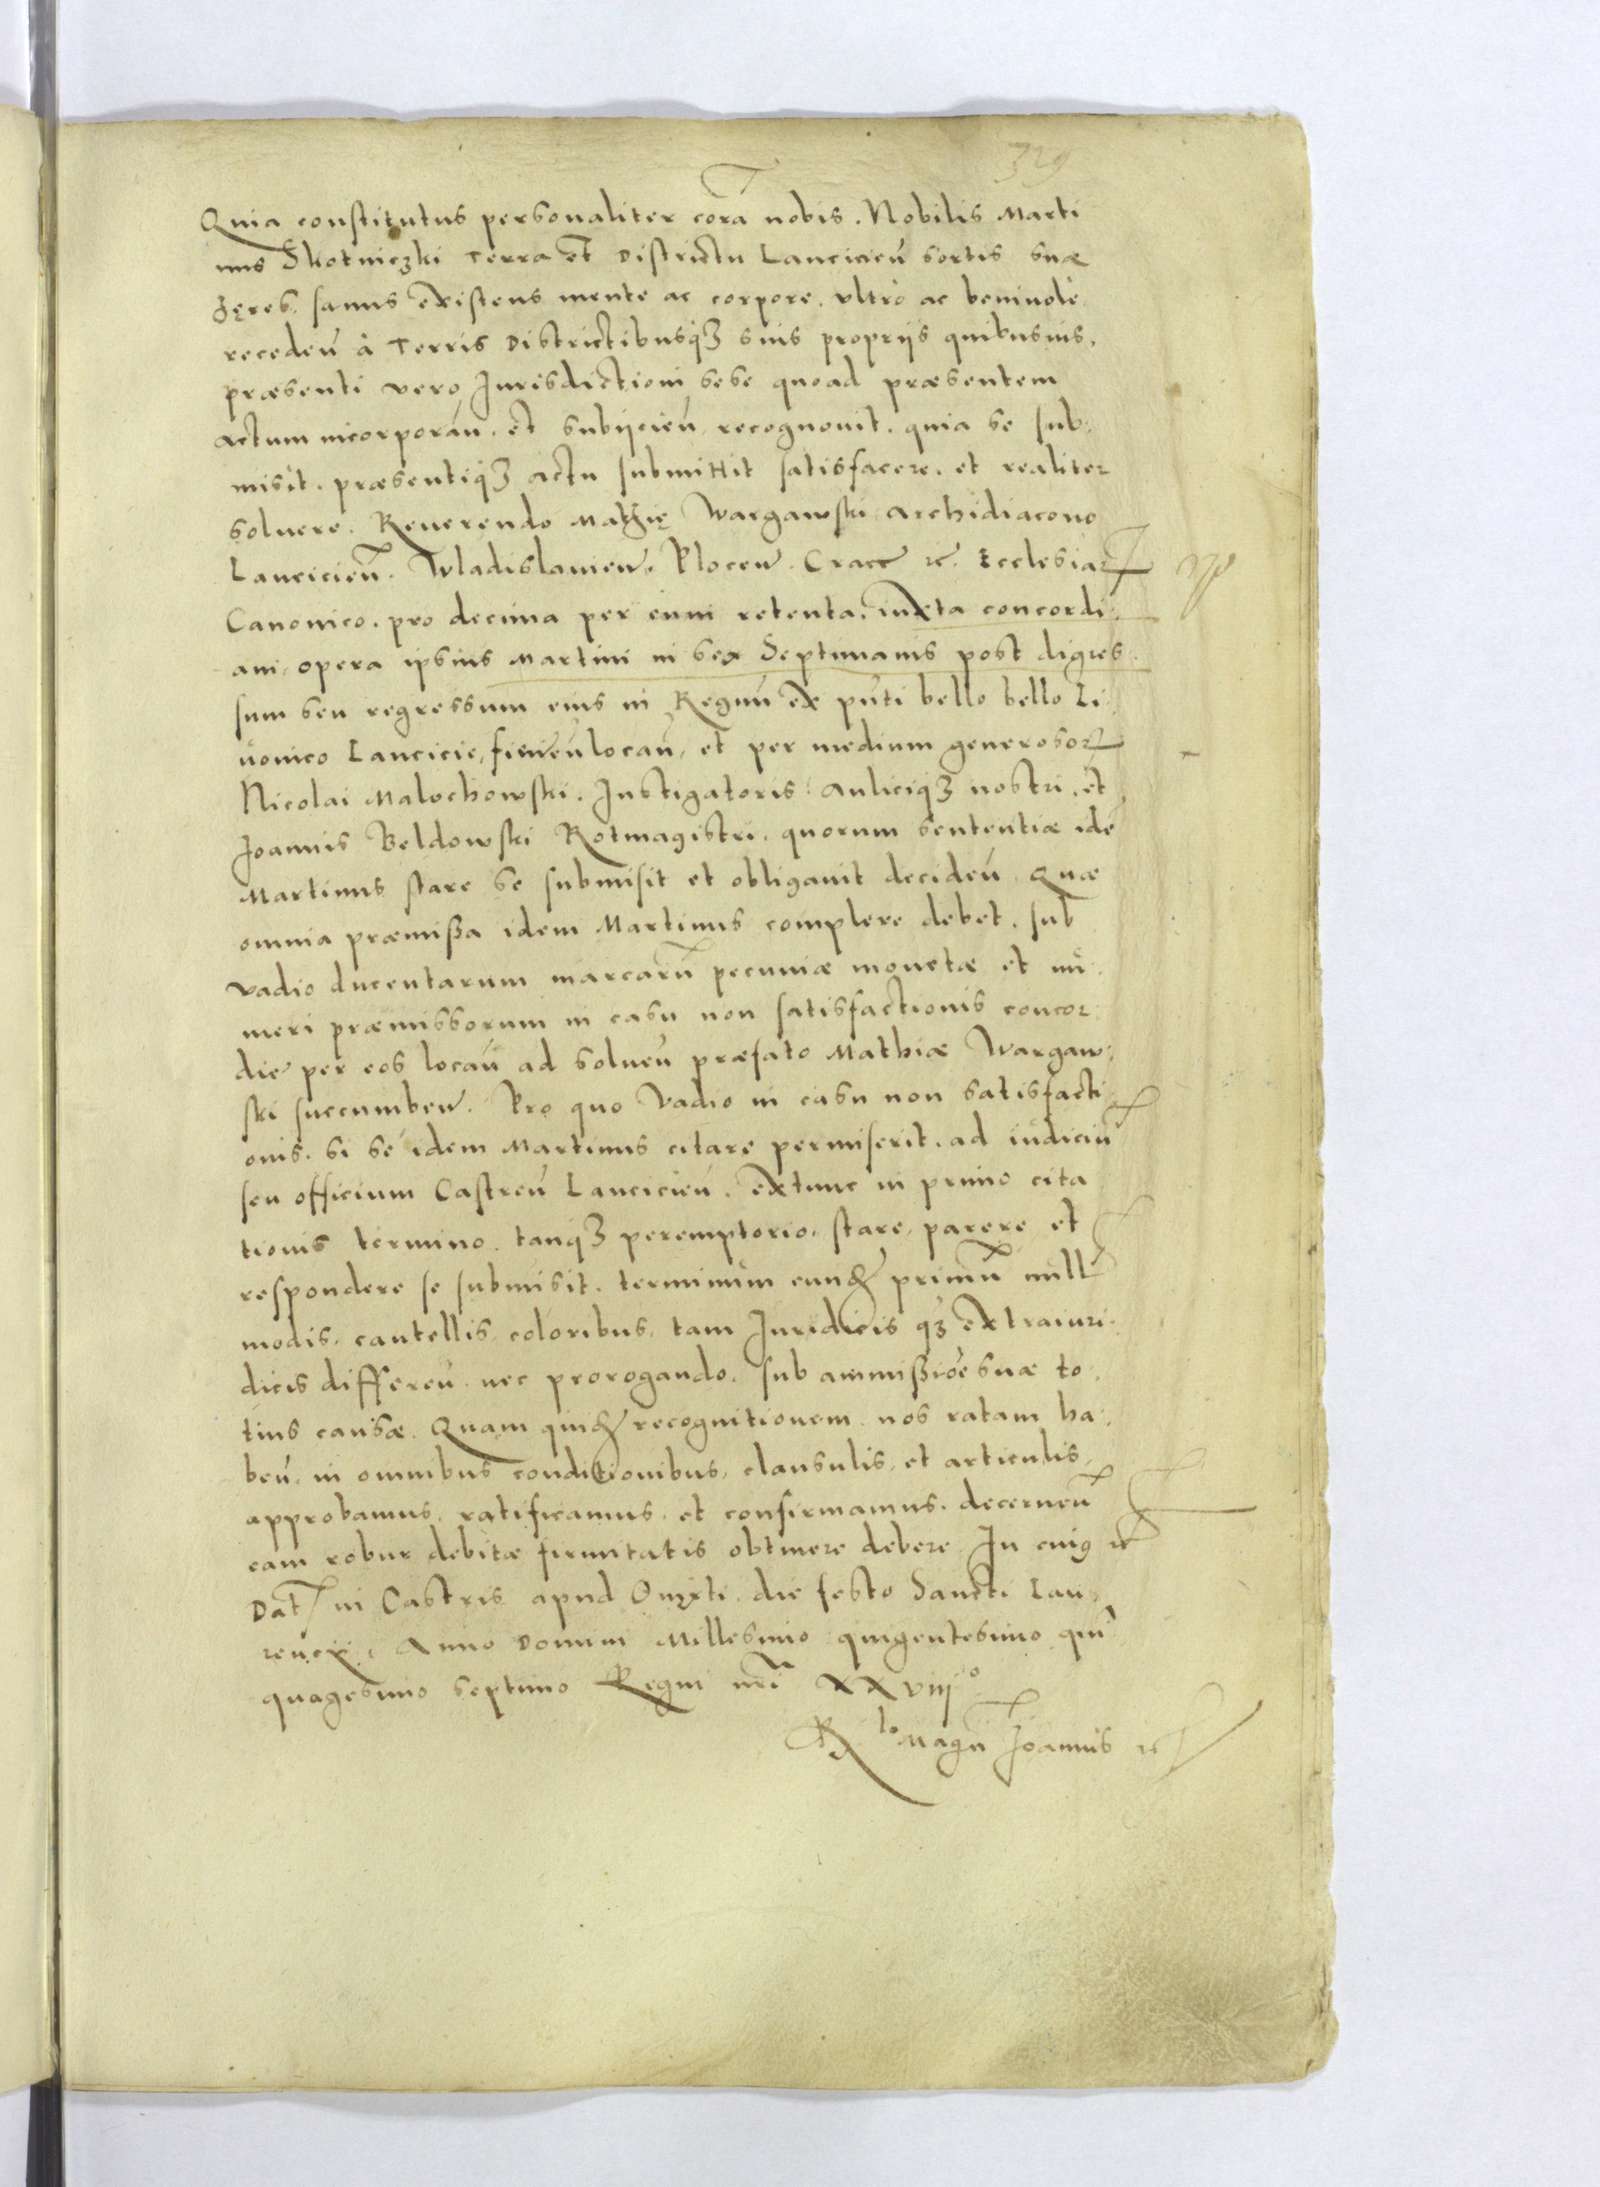 329
Quia constitutus personaliter cora nobis. Nobilis Marti
nus Skotniczki Terra et Districtu Lancicieñ sortis suæ
hęres, sanus existens mente ac corpore, ultrò ac benivolè
recedeñ à Terris Districtibusq3 suis proprijs quibusuis,
præsenti vero Jurisdictioni sese quoad præsentem
actum incorporañ. et subijcieñ, recognovit. quia se sub
misit. præsentiq3 actu submittit satisfacere. et realiter
soluere. Reuerendo Mathię Wargawski Archidiacono
Lancicieñ. Wladislavien. Plocen. Cracc etc. Ecclesiar
Canonico. pro decima per eum retenta. iuxta concordi
am, opera ipsius Martini in sex Septimanis post digres
sum seu regressum eius in Regnũ ex pñti bello bello Li
vonico Lancicie, fieñ locañ, et per medium generosor
Nicolai Malochowski. Instigatoris Auliciq3 nostri, et
Joannis Beldowski Rotmagistri, quorum sententiæ idẽ
Martinus stare se submisit et obligavit decideñ Quæ
omnia præmissa idem Martinus complere debet. sub
vadio ducentarum marcarũ pecuniæ monetæ et nu
meri præmissorum in casu non satisfactionis concor
die per eos locañ ad solueñ præfato Mathiæ Wargaw
ski succumben. Pro quo Vadio in casu non satisfacti
onis. si se idem Martinus citare permiserit. ad iudiciũ
seu officium Castreñ Lancicieñ. extunc in primo cita
tionis termino. tanq3 peremptorio, stare, parere et
respondere se submisit. terminum eund primũ null
modis, cautellis, coloribus, tam Juridicis q3 extraiuri
dicis differeñ. nec prorogando. sub ammissiõe suæ to
tius causæ. Quam quid recognitionem. nos ratam ha
beñ. in omnibus conditionibus, clausulis, et articulis
approbamus. ratificamus. et confirmamus. decerneñ
eam robur debitæ firmitatis obtinere debere. In cuig etc
Dat in Castris apud die festo Sancti Lau
Anno Domini Millesimo quigentesimo qui
quagesimo septimo Regni nri XXViijº
Rlo Magn Joannis etc